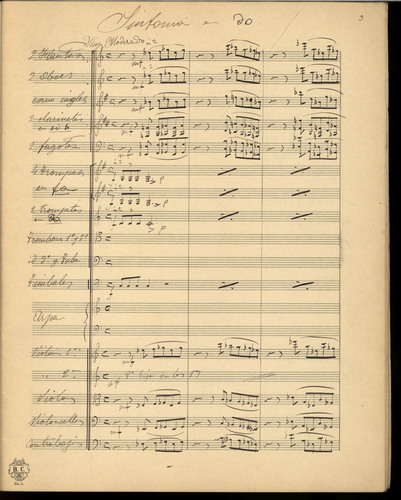 Sinfonia en DO
3
Muy Moderado
2 Flautas
2 Oboes
corno inglés
2 clarinetes
en si b
2 fagotes
4 Trompas
en fa
2 trompetas
en
Trombone 1º y 2º
3º y Tuba
Timbales
Arpa
Violin 1os
" 2os
Violas
Violoncellos
Contrabajos
B.C.